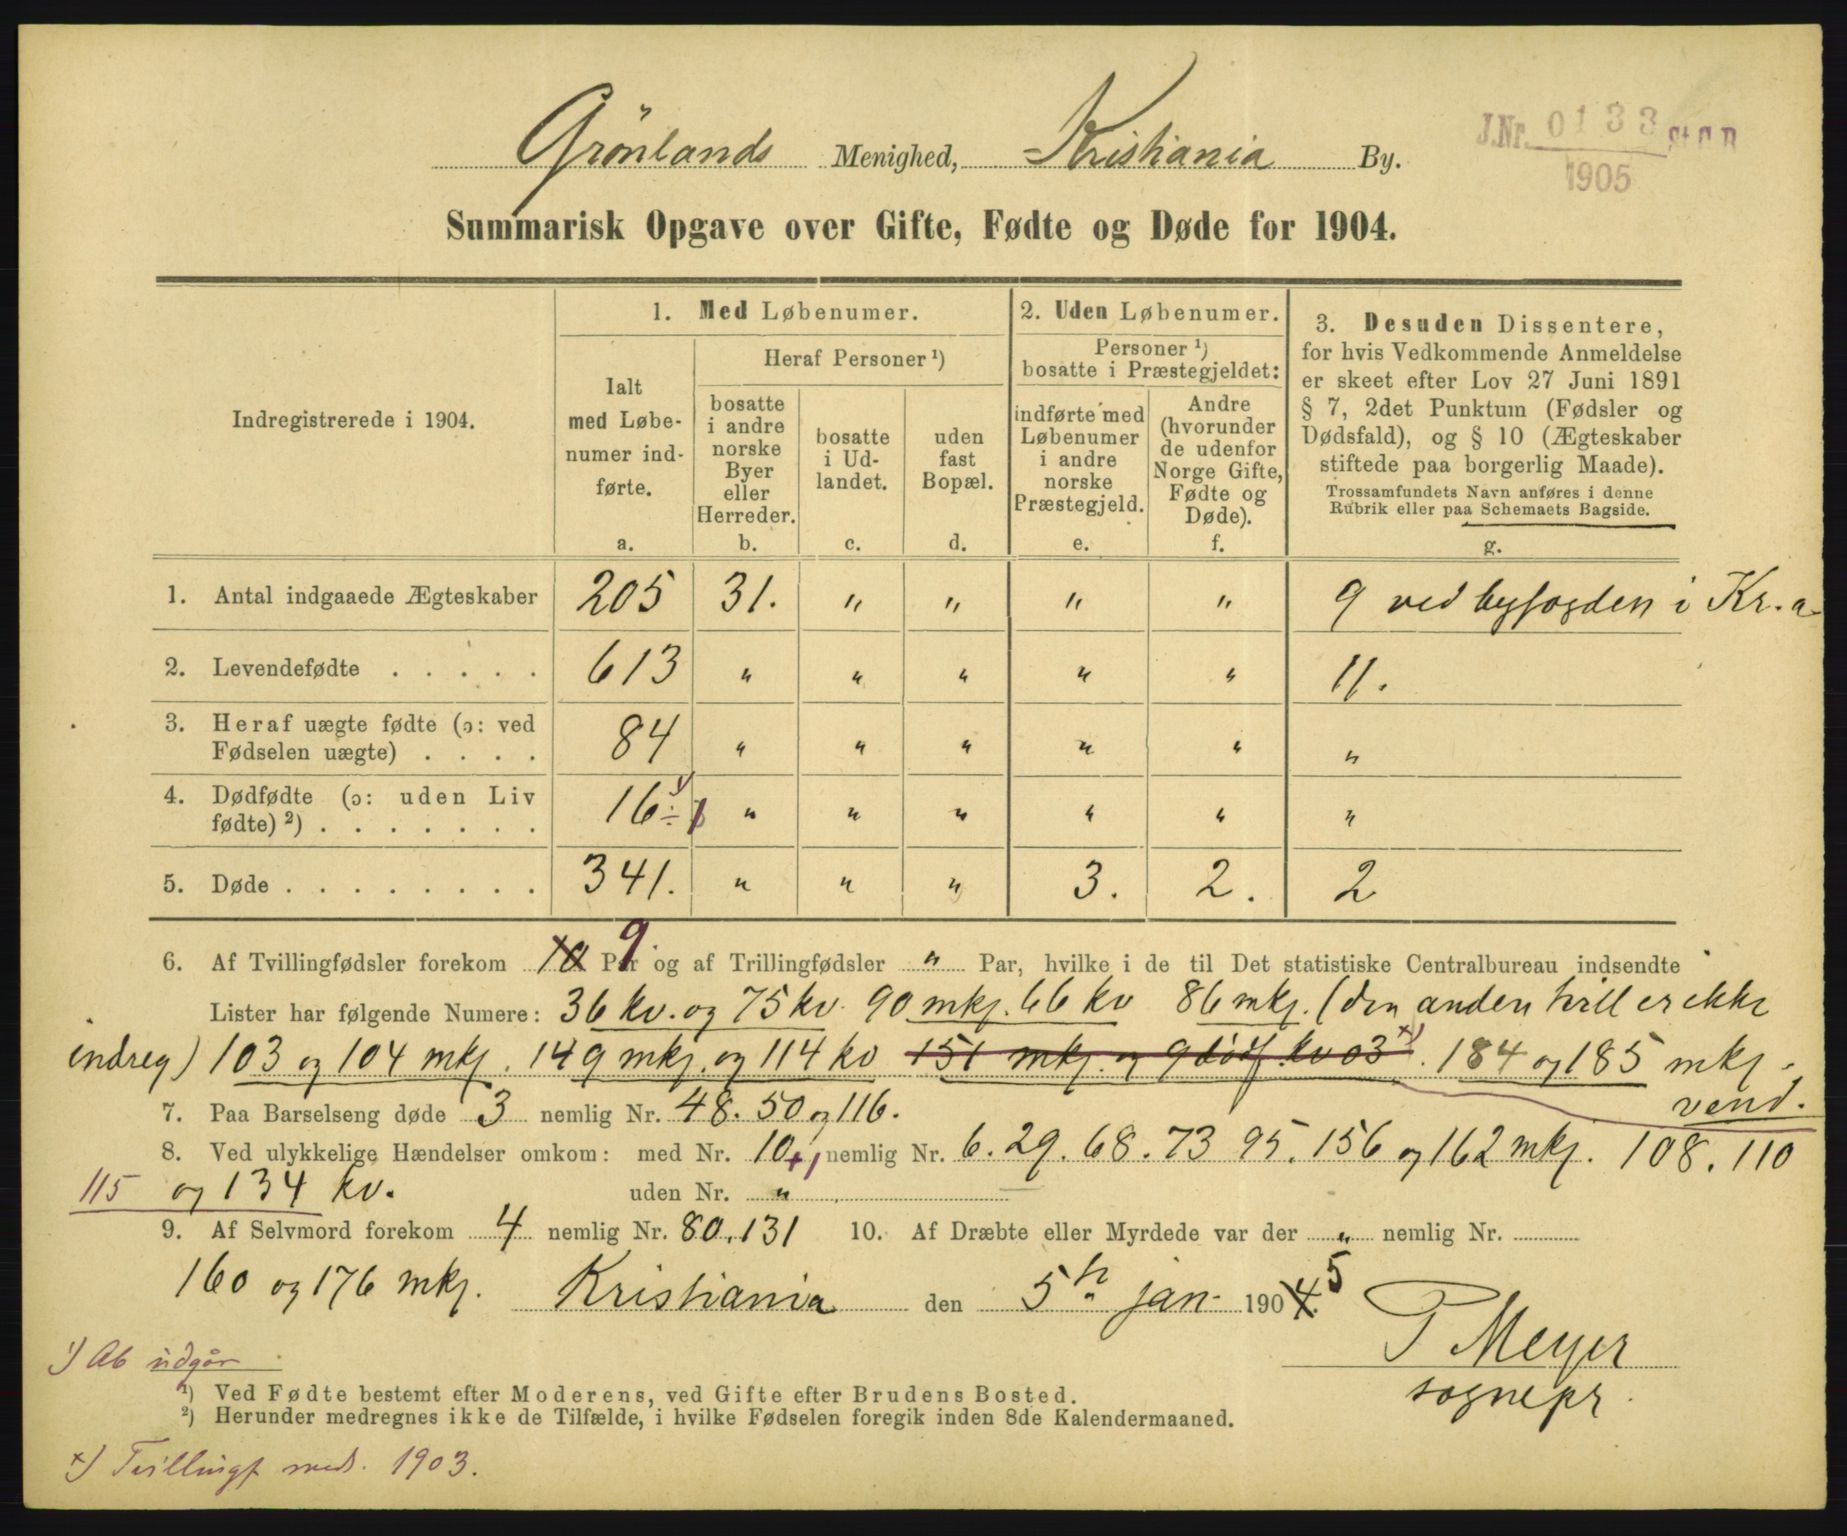 Grønlands Menighed, Kristiania By.
J.Nr. 0133 St.C.B
1905
Summarisk Opgave over Gifte, Fødte og Døde for 1904.
Indregistrerede i 1904.
1. Med Løbenumer.
Ialt
med Løbe-
numer ind-
førte.
a.
Heraf Personer ¹)
bosatte
i andre
norske
Byer
eller
Herreder.
b.
bosatte
i Ud-
landet.
c.
uden
fast
Bopæl.
d.
2. Uden Løbenumer.
Personer ¹)
bosatte i Præstegjeldet:
indførte med
Løbenumer
i andre
norske
Præstegjeld.
e.
Andre
(hvorunder
de udenfor
Norge Gifte,
Fødte og
Døde).
f.
3. Desuden Dissentere,
for hvis Vedkommende Anmeldelse
er skeet efter Lov 27 Juni 1891
§ 7, 2det Punktum (Fødsler og
Dødsfald), og § 10 (Ægteskaber
stiftede paa borgerlig Maade).
Trossamfundets Navn anføres i denne
Rubrik eller paa Schemaets Bagside.
g.
1. Antal indgaaede Ægteskaber 205 31. " " " " 9 ved byfogden i Kr.a
2. Levendefødte . . . . . 613 " " " " " 11.
3. Heraf uægte fødte (ɔ: ved
Fødselen uægte) . . . . 84 " " " " " "
4. Dødfødte (ɔ: uden Liv
fødte) ²) . . . . . . . 16 ¹) ÷ 1 " " " " " "
5. Døde . . . . . . . . 341. " " " 3. 2. 2
6. Af Tvillingfødsler forekom 10 9. Par og af Trillingfødsler " Par, hvilke i de til Det statistiske Centralbureau indsendte
Lister har følgende Numere: 36 kv. og 75 kv. 90 mkj. 66 kv 86 mkj. (den anden tvill er ikke
indreg) 103 og 104 mkj. 149 mkj. og 114 kv 151 mkj. og 9 dødf. kv 03 ×) . 184 og 185 mkj.
vend.
7. Paa Barselseng døde 3 nemlig Nr. 48. 50 og 116.
8. Ved ulykkelige Hændelser omkom: med Nr. 10 +1, nemlig Nr. 6. 29. 68. 73 95. 156 og 162 mkj. 108. 110
115 og 134 kv. uden Nr. "
9. Af Selvmord forekom 4 nemlig Nr. 80. 131 10. Af Dræbte eller Myrdede var der " nemlig Nr.
160 og 176 mkj. Kristiania den 5te jan. 1904. 5
P Meyer
sognepr.
¹) Ab udgår
¹) Ved Fødte bestemt efter Moderens, ved Gifte efter Brudens Bosted.
²) Herunder medregnes ikke de Tilfælde, i hvilke Fødselen foregik inden 8de Kalendermaaned.
×) Tvillingf medr. 1903.